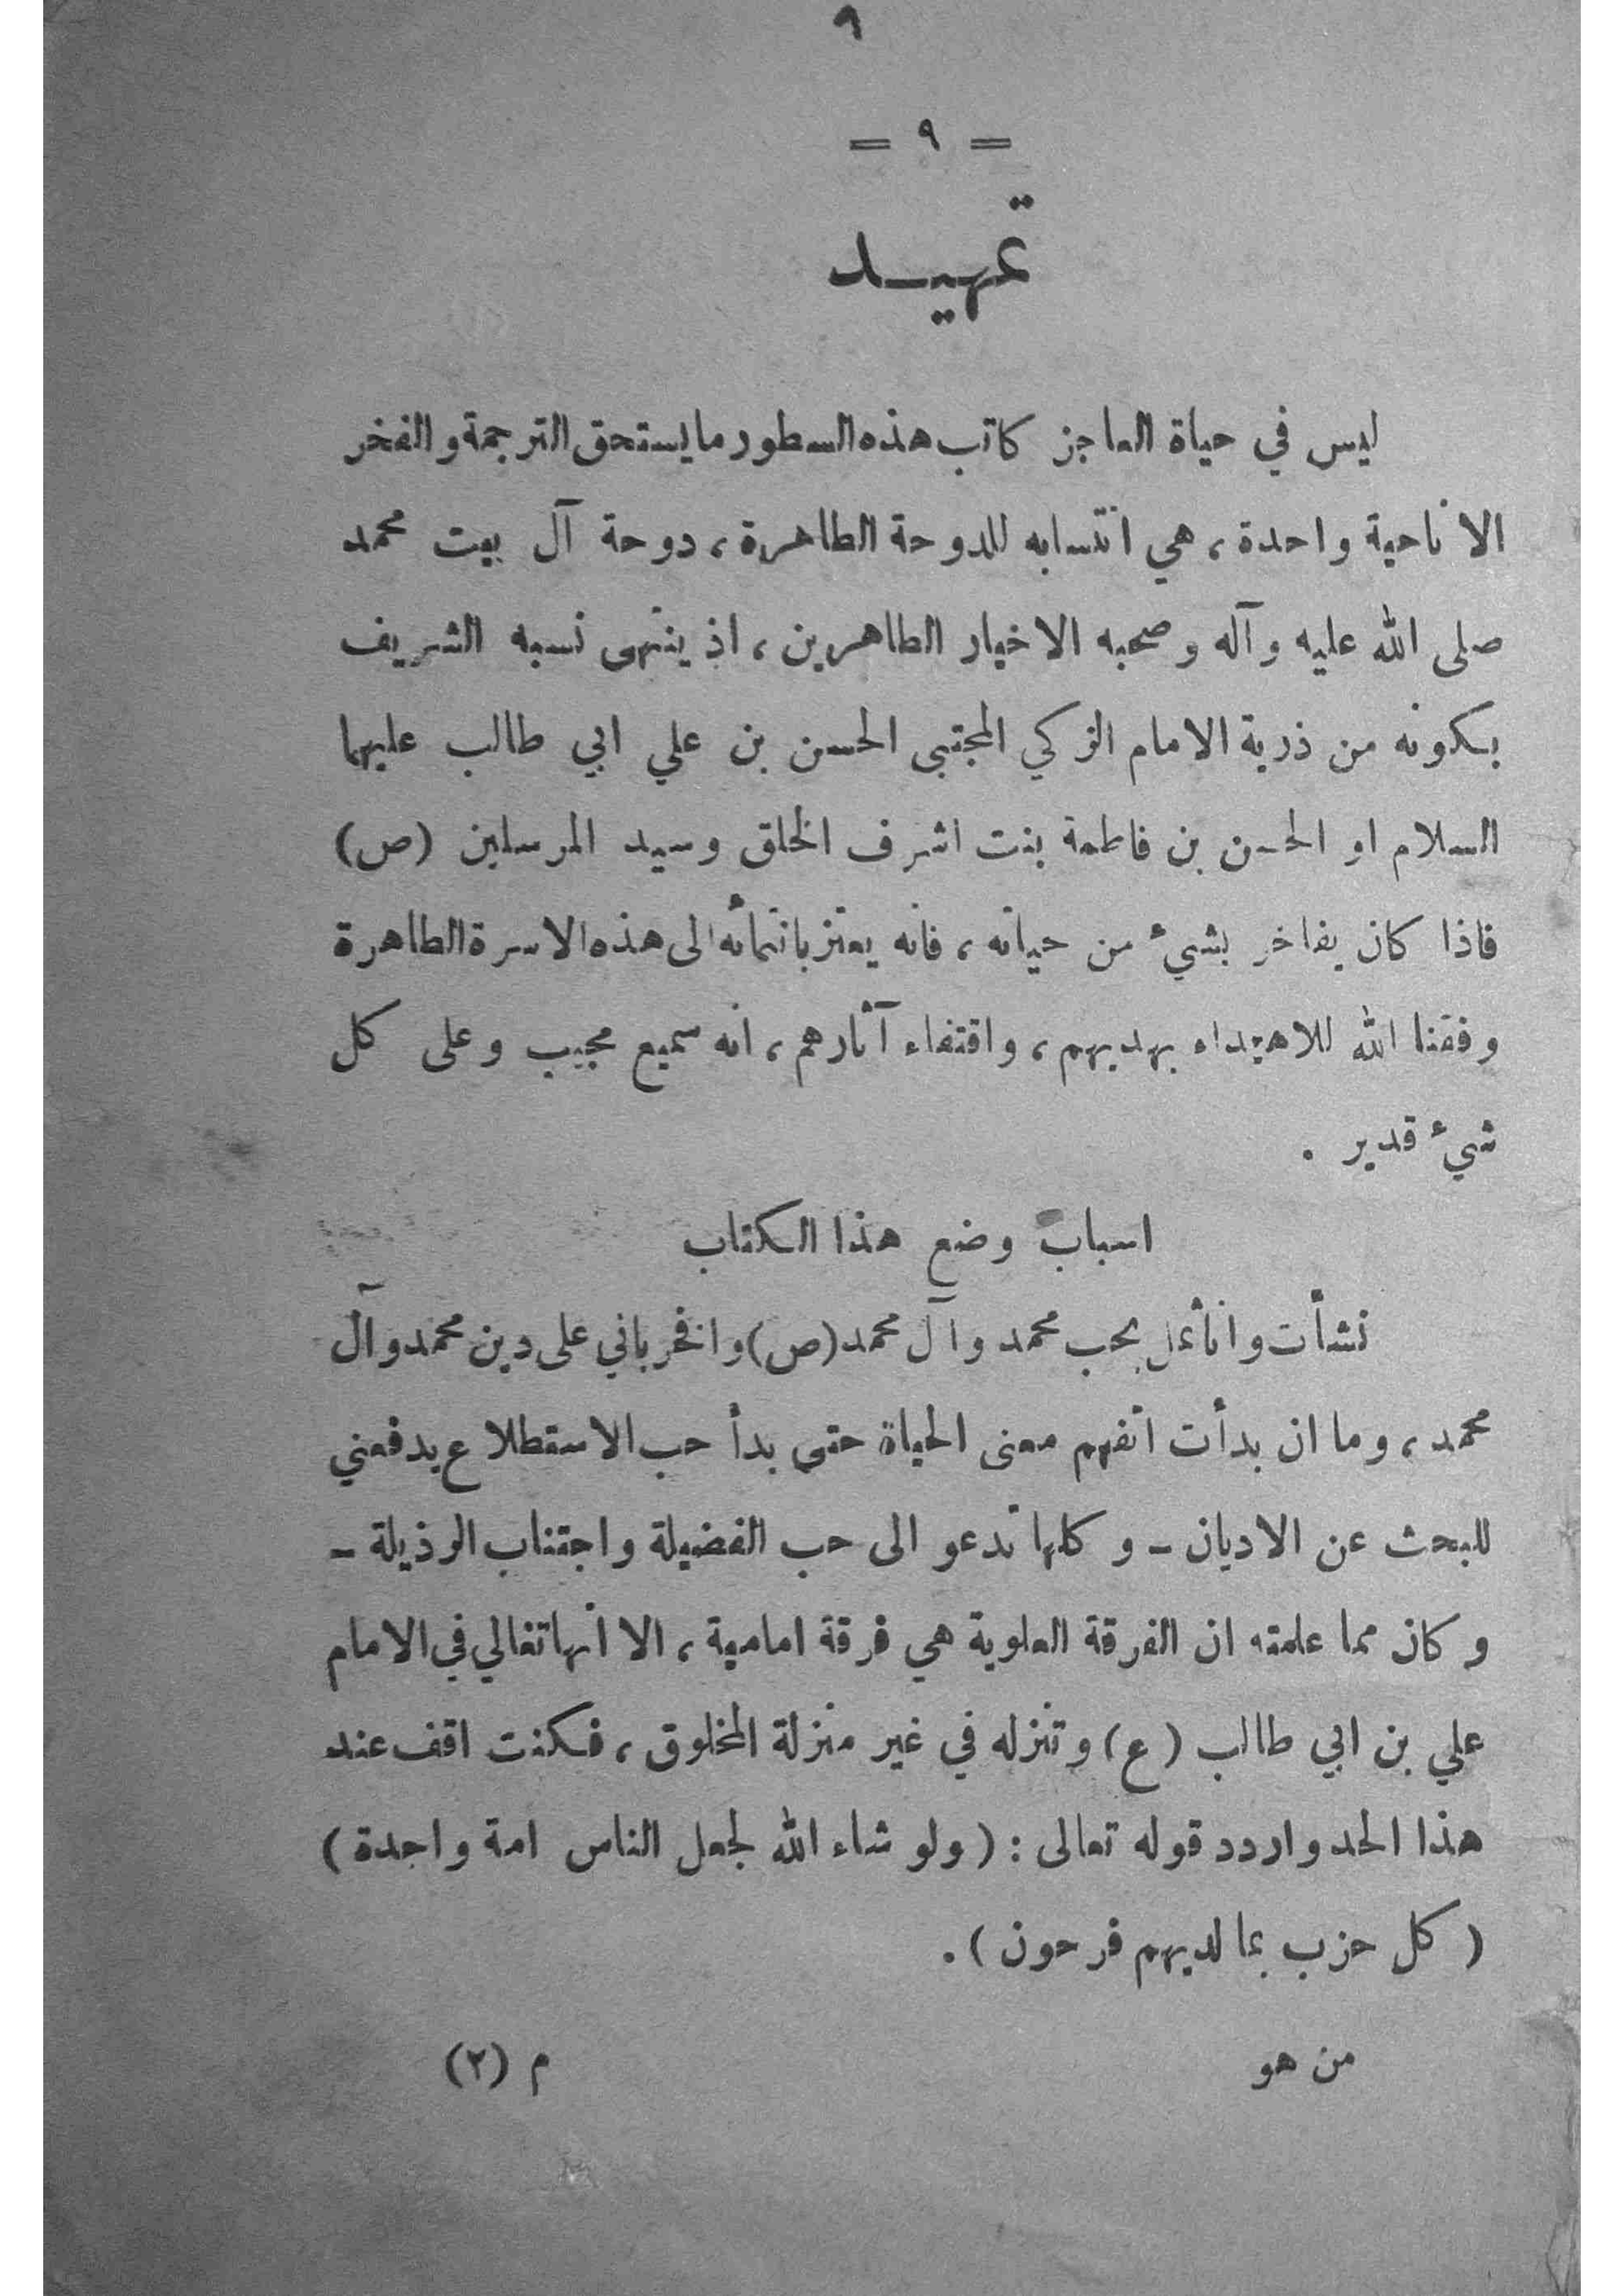 ٩
= ٩ =
تمهيد
ليس في حياة العاجز كاتب هذه السطور ما يستحق الترجمة والفخر
الا ناحية واحدة ، هي انتسابه للدوحة الطاهرة ، دوحة آل بيت محمد
صلى الله عليه وآله وصحبه الاخيار الطاهرين ، اذ ينتهى نسبه الشريف
بكونه من ذرية الامام الزكي المجتبى الحسن بن علي ابي طالب عليهما
السلام او الحسن بن فاطمة بنت اشرف الخلق وسيد المرسلين (ص)
فاذا كان يفاخر بشيء من حياته ، فانه يعتز بانتمائه الى هذه الاسرة الطاهرة
وفقنا الله للاهتداء بهديهم ، واقتفاء آثارهم ، انه سميع مجيب وعلى كل
شيء قدير .
اسباب وضع هذا الكتاب
نشأت وانا ثمل بحب محمد وآل محمد (ص) وافخر باني على دين محمد وآل
محمد ، وما ان بدأت اتفهم معنى الحياة حتى بدأ حب الاستطلاع يدفعني
للبحث عن الاديان - وكلها تدعو الى حب الفضيلة واجتناب الرذيلة -
وكان مما علمته ان الفرقة العلوية هي فرقة امامية ، الا انها تغالي في الامام
علي بن ابي طالب (ع) وتنزله في غير منزلة المخلوق ، فكنت اقف عند
هذا الحد واردد قوله تعالى : (ولو شاء الله لجعل الناس امة واحدة)
(كل حزب بما لديهم فرحون) .
من هو م (٢)